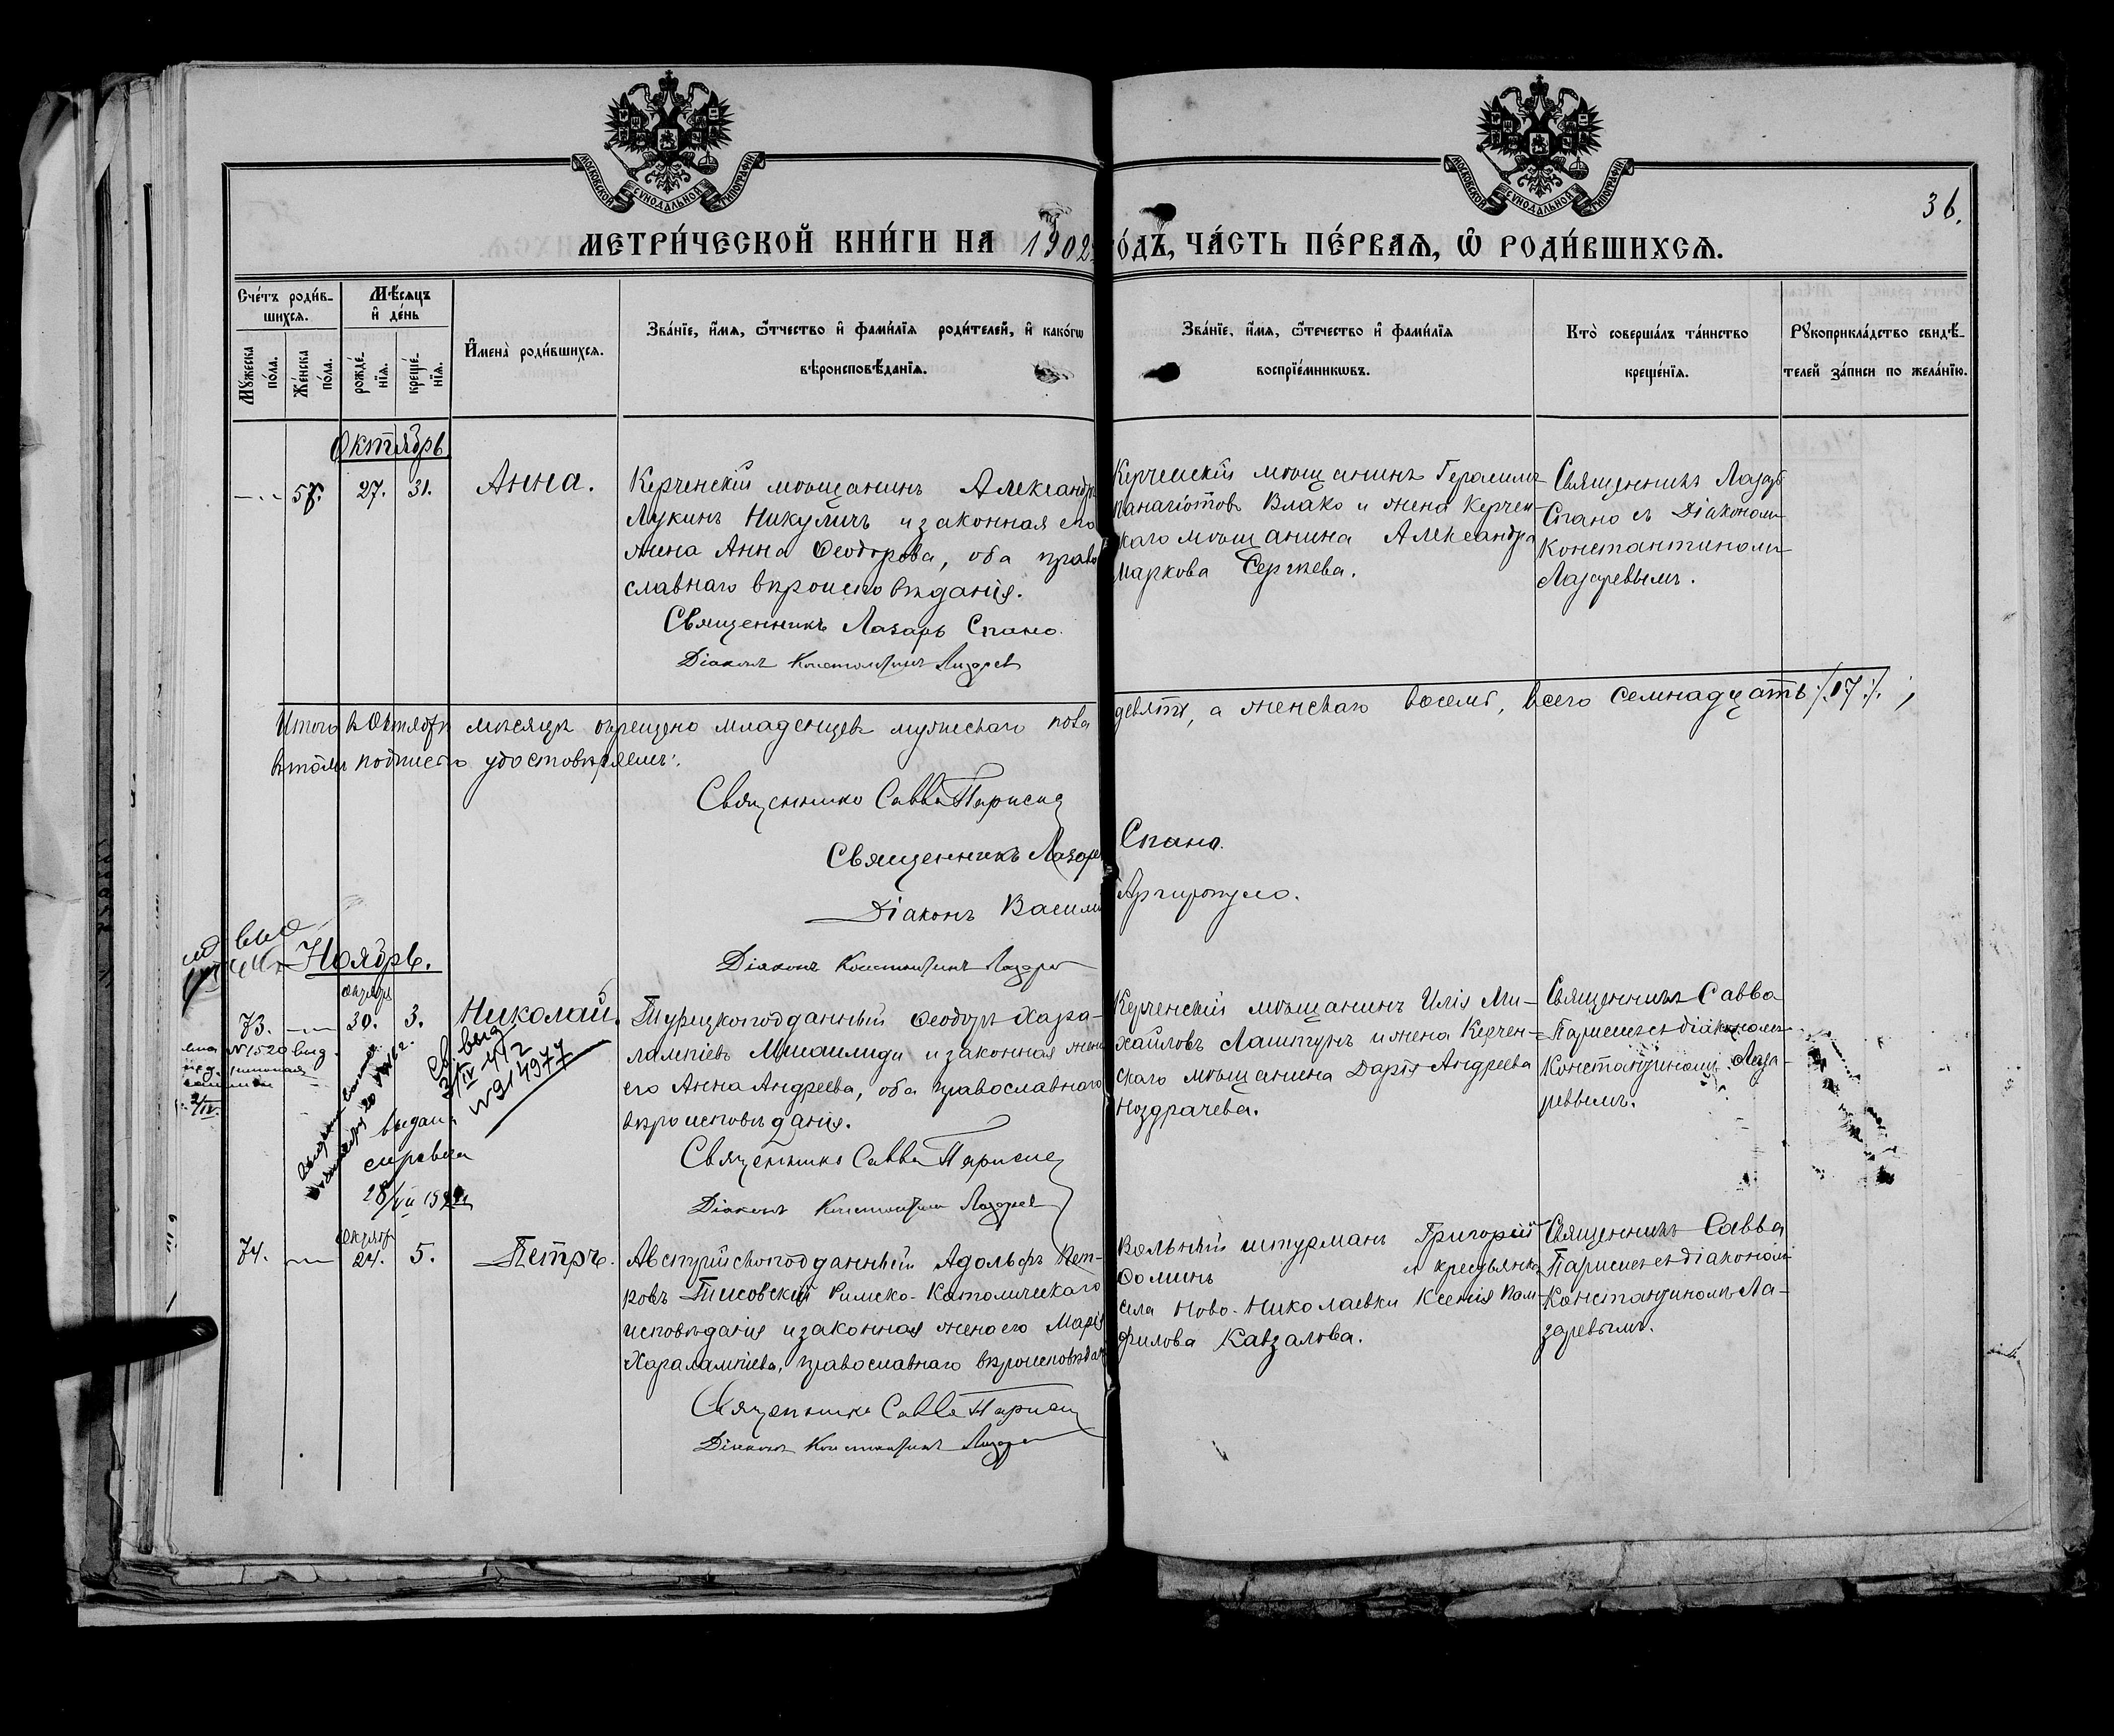 МОСКОВСКОЙ СУНОДАЛЬНОЙ ТИПОГРАФІИ
МОСКОВСКОЙ СУНОДАЛЬНОЙ ТИПОГРАФІИ
36.
МЕТРИ́ЧЕСКОЙ КНИ́ГИ НА 1902
О́ДЪ, ЧА́СТЬ ПЕ́РВАѦ, Ѡ҆ РОДИ́ВШИХСѦ.
Сче́тъ роди́в-
шихсѧ.
Мѣ́сѧцъ
и҆ де́нь
Мꙋ́жеска
по́ла.
Же́нска
по́ла.
рожде́-
нїѧ.
креще́-
нїѧ.
И҆мена̀ роди́вшихсѧ.
Зва́нїе, и҆́мѧ, ѻ҆́тчество и҆ фами́лїѧ роди́телей, и҆ како́гѡ
вѣроисповѣ́данїѧ.
Зва́нїе, и҆́мѧ, ѻ҆́течество и҆ фами́лїѧ
воспрїе́мникѡвъ.
Кто̀ соверша́лъ та́инство
креще́нїѧ.
Рꙋкоприкла́дство свидѣ́-
телей за́писи по жела́нїю.
Октябрь
57. 27. 31. Анна.
Керченскій мѣщанинъ Александръ
Лукинъ Никуличъ и законная его
жена Анна Ѳеодорова, оба право
славнаго вѣроисповѣданія.
Священникъ Лазарь Спано.
Діаконъ Константинъ Лазарев
Керченскій мѣщанинъ Герасимъ
Панагіотовъ Влако и жена Керчен-
скаго мѣщанина Александра
Маркова Сергѣева.
Священникъ Лазарь
Спано съ Діакономъ
Константиномъ
Лазаревымъ.
Итого въ Октябрѣ мѣсяцѣ окрещено младенцевъ мужескаго пола девять, а женскаго восемь, всего семнадцать /.17./. ;
въ томъ подписью удостовѣряемъ:
Священникъ Савва Парисис
Священникъ Лазарь Спано.
Діаконъ Василій Аргиропуло.
Діаконъ Константинъ Лазарев
Ноябрь.
73. Октября 30. 3. Николай.
Турецкоподданный Ѳеодоръ Хара-
лампіевъ Миаилиди и законная жена
его Анна Андреева, оба православнаго
вѣроисповѣданія.
Священникъ Савва Парисис
Діаконъ Константинъ Лазарев
Керченскій мѣщанинъ Илія Ми-
хайловъ Лаштунъ и жена Керчен-
скаго мѣщанина Дарія Андреева
Ноздрачева.
Священникъ Савва
Парисисъ съ діакономъ
Константиномъ Лаза-
ревымъ.
№1520 выд.
2/IV.
св. выд
2/IV-42
№914977
выдана
справка
28/VII 192
74. Октября 24. 5. Петръ.
Австрійскоподданный Адольфъ Пет-
ровъ Тисовскій Римско-Католическаго
исповѣданія и законная жена его Марія
Харалампіева, православнаго вѣроисповѣдан
Священникъ Савва Парисис
Діаконъ Константинъ Лазарев
Вольный штурманъ Григорій
Фоминъ и крестьянка
села Ново-Николаевки Ксенія Пам-
филова Кавзалова.
Священникъ Савва
Парисисъ съ діакономъ
Константиномъ Ла-
заревымъ.